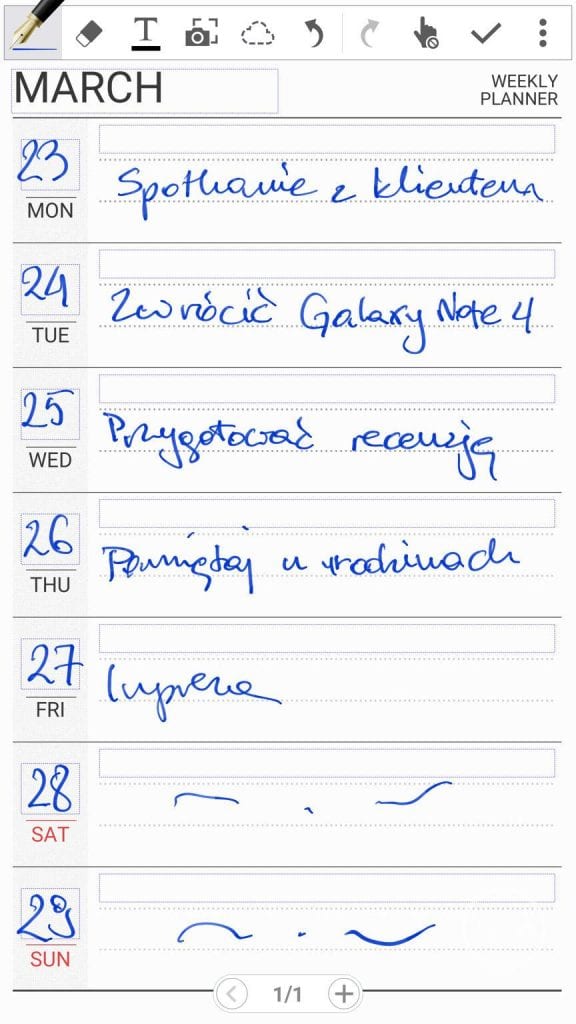 T
MARCH
WEEKLY
PLANNER
23
MON
Spotkanie z klientem
24
TUE
Zwrócić Galaxy Note 4
25
WED
Przygotować recenzję
26
THU
Pamiętaj u urodzinach
27
FRI
Impreza
28
SAT
29
SUN
1/1